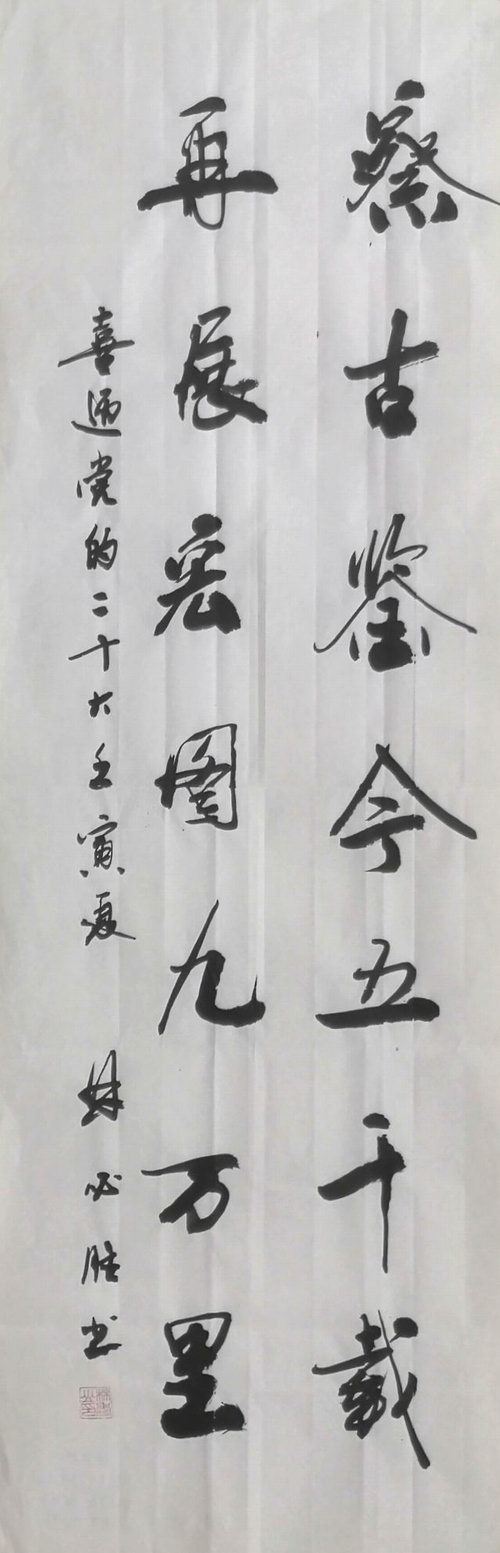 察古鉴今五千载
再展宏图九万里
喜迎党的二十大壬寅夏 林必胜书